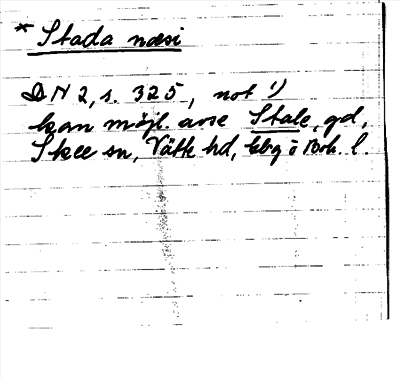 * Stada næsi
DN 2, s. 325, not 1)
kan möjl. avse Stale, gd,
Skee sn, Vätte hd, Gbg o Boh. l.